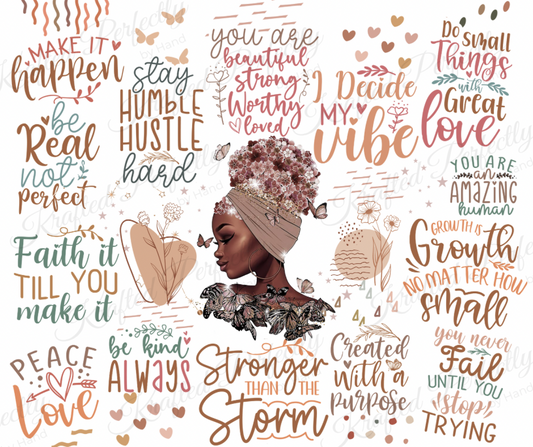 MAKE IT
happen
stay
HUMBLE
HUSTLE
hard
you are
beautiful
strong
Worthy
loved
I Decide
MY
vibe
Do small
Things
with
Great
love
be
Real
not
perfect
YOU ARE
an
AMAZING
human
Faith it
TILL YOU
make it
GROWTH IS
Growth
NO MATTER HOW
small
PEACE
Love
be kind
ALWAYS
Stronger
THAN THE
Storm
Created
With a
PURPOSE
you never
Fail
UNTIL YOU
stop
TRYING
Krafted Perfectly
by Hand